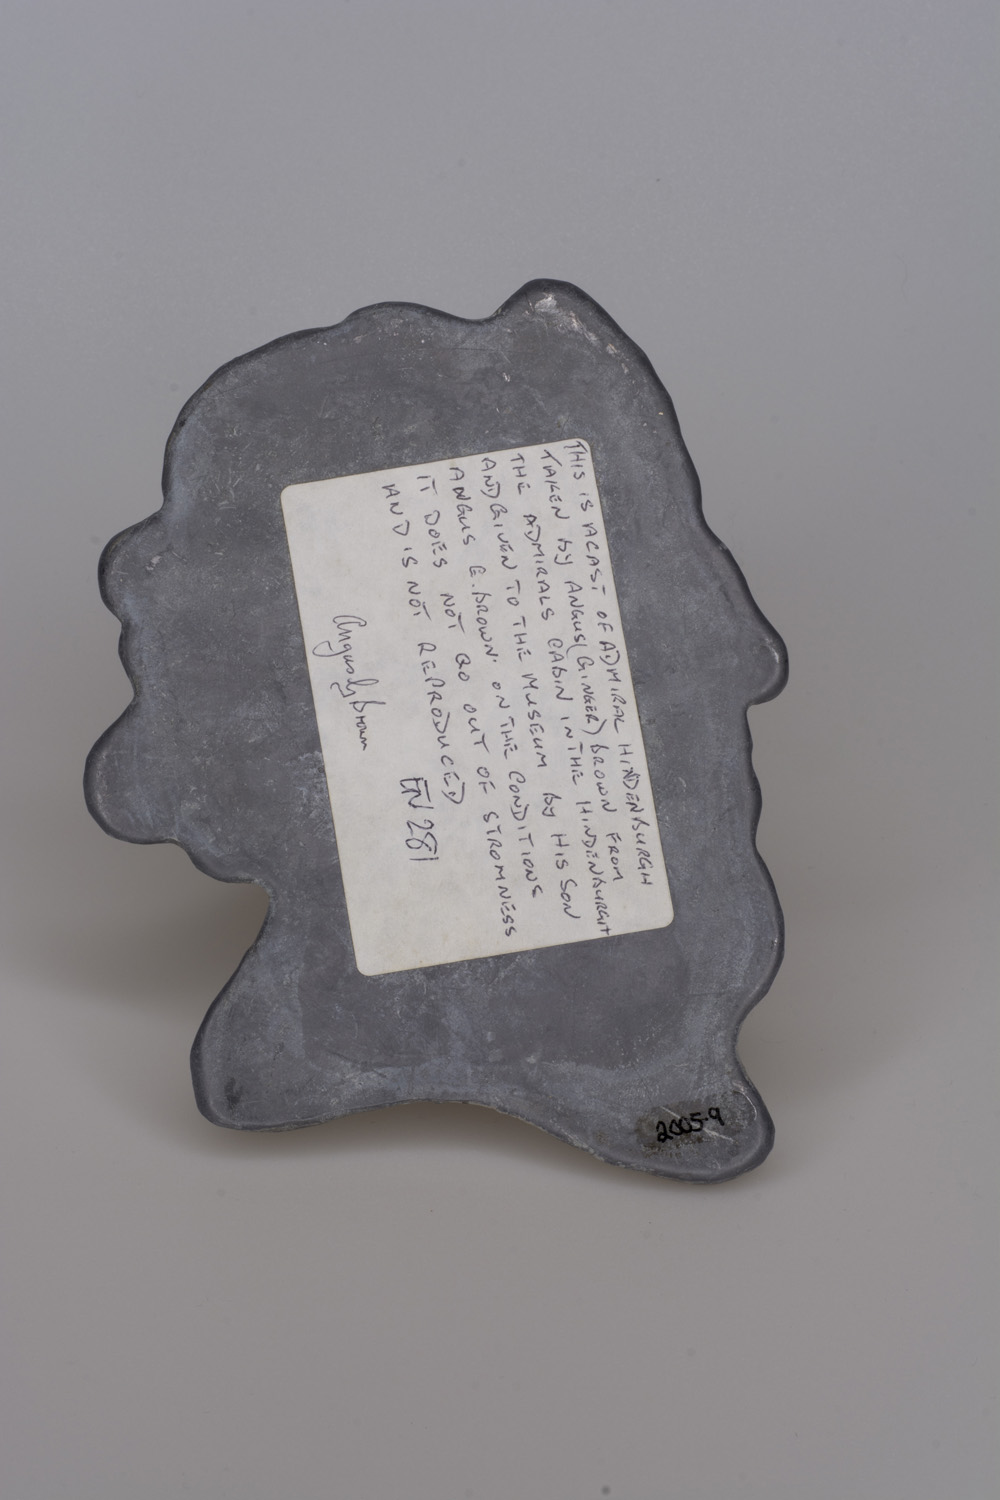 THIS IS A CAST OF ADMIRAL HINDENBURGH
TAKEN BY ANGUS (GINGER) BROWN FROM
THE ADMIRALS CABIN IN THE HINDENBURGH
AND GIVEN TO THE MUSEUM BY HIS SON
ANGUS G. BROWN. ON THE CONDITIONS
IT DOES NOT GO OUT OF STROMNESS
AND IS NOT REPRODUCED
EN 281
Angus G Brown
2005.9